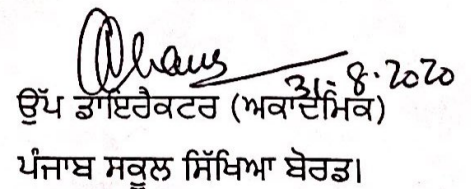 31-8-2020
ਉੱਪ ਡਾਇਰੈਕਟਰ (ਅਕਾਦਮਿਕ)
ਪੰਜਾਬ ਸਕੂਲ ਸਿੱਖਿਆ ਬੋਰਡ।